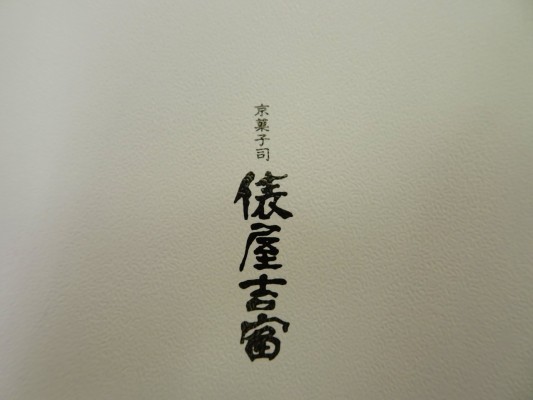 京菓子司
俵屋吉富